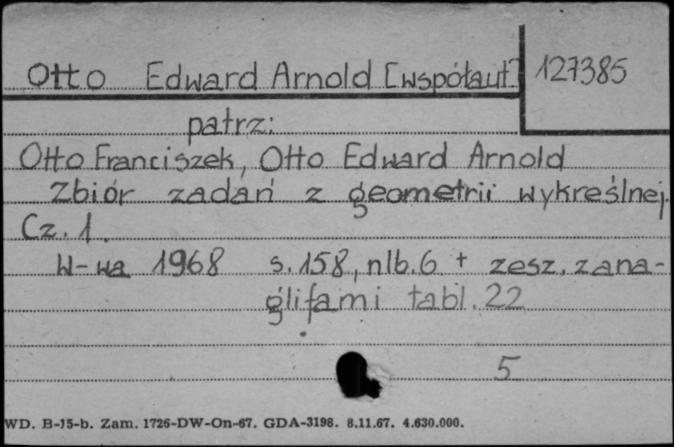 Otto Edward Arnold [współaut] 127385
patrz:
Otto Franciszek, Otto Edward Arnold
Zbiór zadań z geometrii wykreślnej.
Cz. 1.
W-wa 1968 s. 158, nlb. 6 + zesz. z ana-
glifami tabl. 22
5
WD. B-15-b. Zam. 1726-DW-On-67. GDA-3198. 8.11.67. 4.630.000.